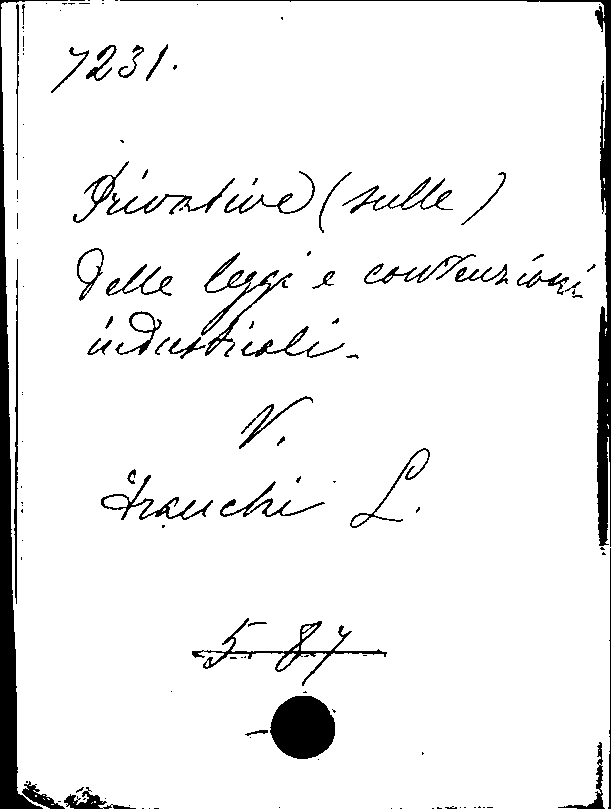 7231.
Privative (sulle)
Delle leggi e convenzioni
industriali -
V.
Franchi L.
5 87